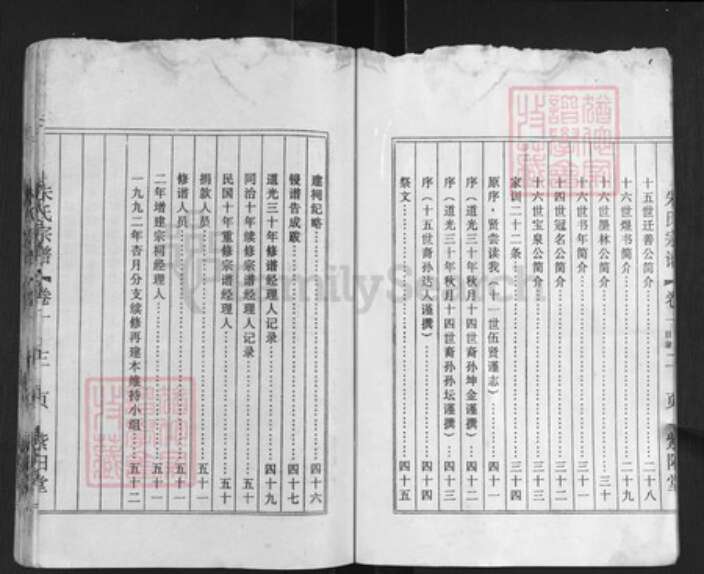 十五世迁善公简介……二十八
十六世燝书简介……二十九
十六世墨林公简介……三十
十六世书年简介……三十一
十四世冠名公简介……三十二
十六世宝泉公简介……三十三
家训二十二条……三十四
原序·贤尝读我(十一世伍贤谨志)……四十一
序(道光三十年秋月十四世裔孙坤金谨撰)……四十二
序(道光三十年秋月十四世裔孙孙坛谨撰)……四十三
序(十五世裔孙达人谨撰)……四十四
祭文……四十五
建祠纪略……四十六
镘谱告成跋……四十七
道光三十年修谱经理人记录……四十九
同治十年续修宗谱经理人记录……五十
民国十年重修宗谱经理人……五十
捐款人员……五十一
修谱人员……五十一
二年增建宗祠经理人……五十一
一九九二年杏月分支续修再建本维持小组……五十二
朱氏宗谱【卷 页 紫阳堂
FamilySearch